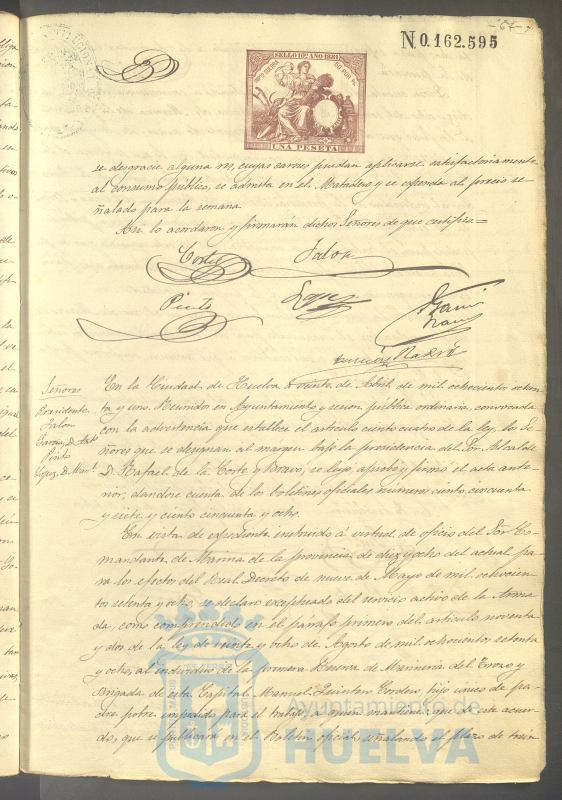 -64-
N 0.162.595
SELLO 10º AÑO 1881
UNA PESETA
se desgracie alguna res, cuyas carnes puedan aplicarse satisfactoriamente
al consumo publico, se admita en el Matadero y se expenda al precio se-
ñalado para la semana
Asi lo acordaron y firmarán dichos Señores de que certifico.=
Corte Jalon
Pinto Lopez
Garcia
Señores
Presidente
Jalon
Garcia, D. Anto
Pinto
Lopez, D. Manl
En la Ciudad de Huelva á veinte de Abril de mil ochocientos ochen-
ta y uno. Reunidos en Ayuntamiento y sesion publica ordinaria, convocada
con la advertencia que establece el articulo ciento cuatro de la ley, los Se-
ñores que se designan al margen bajo la presidencia del Sor. Alcalde
D. Rafael de la Corte y Bravo, se leyó, aprobó y firmó el acta ante-
rior, dandose cuenta de los boletines oficiales números ciento cincuenta
y siete y ciento cincuenta y ocho.
En vista de expediente instruido á virtud de oficio del Sor. Co-
mandante de Marina de la provincia de diez y ocho del actual, pa-
ra los efectos del Real Decreto de nueve de Mayo de mil ochocien-
tos setenta y ocho, se declaró exceptuado del servicio activo de la Arma-
da, como comprendido en el párrafo primero del articulo noventa
y dos de la ley de veinte y ocho de Agosto de mil ochocientos setenta
y ocho, al individuo de la primera Reserva de Marineria del Trozo y
Brigada de esta Capital Manuel Quintero Cordero, hijo unico de pa-
dre pobre impedido para el trabajo, a quien mantiene; que de este acuer-
do, que se publicará en el Boletin oficial, señalando el plazo de trein-
Ayuntamiento de
HUELVA